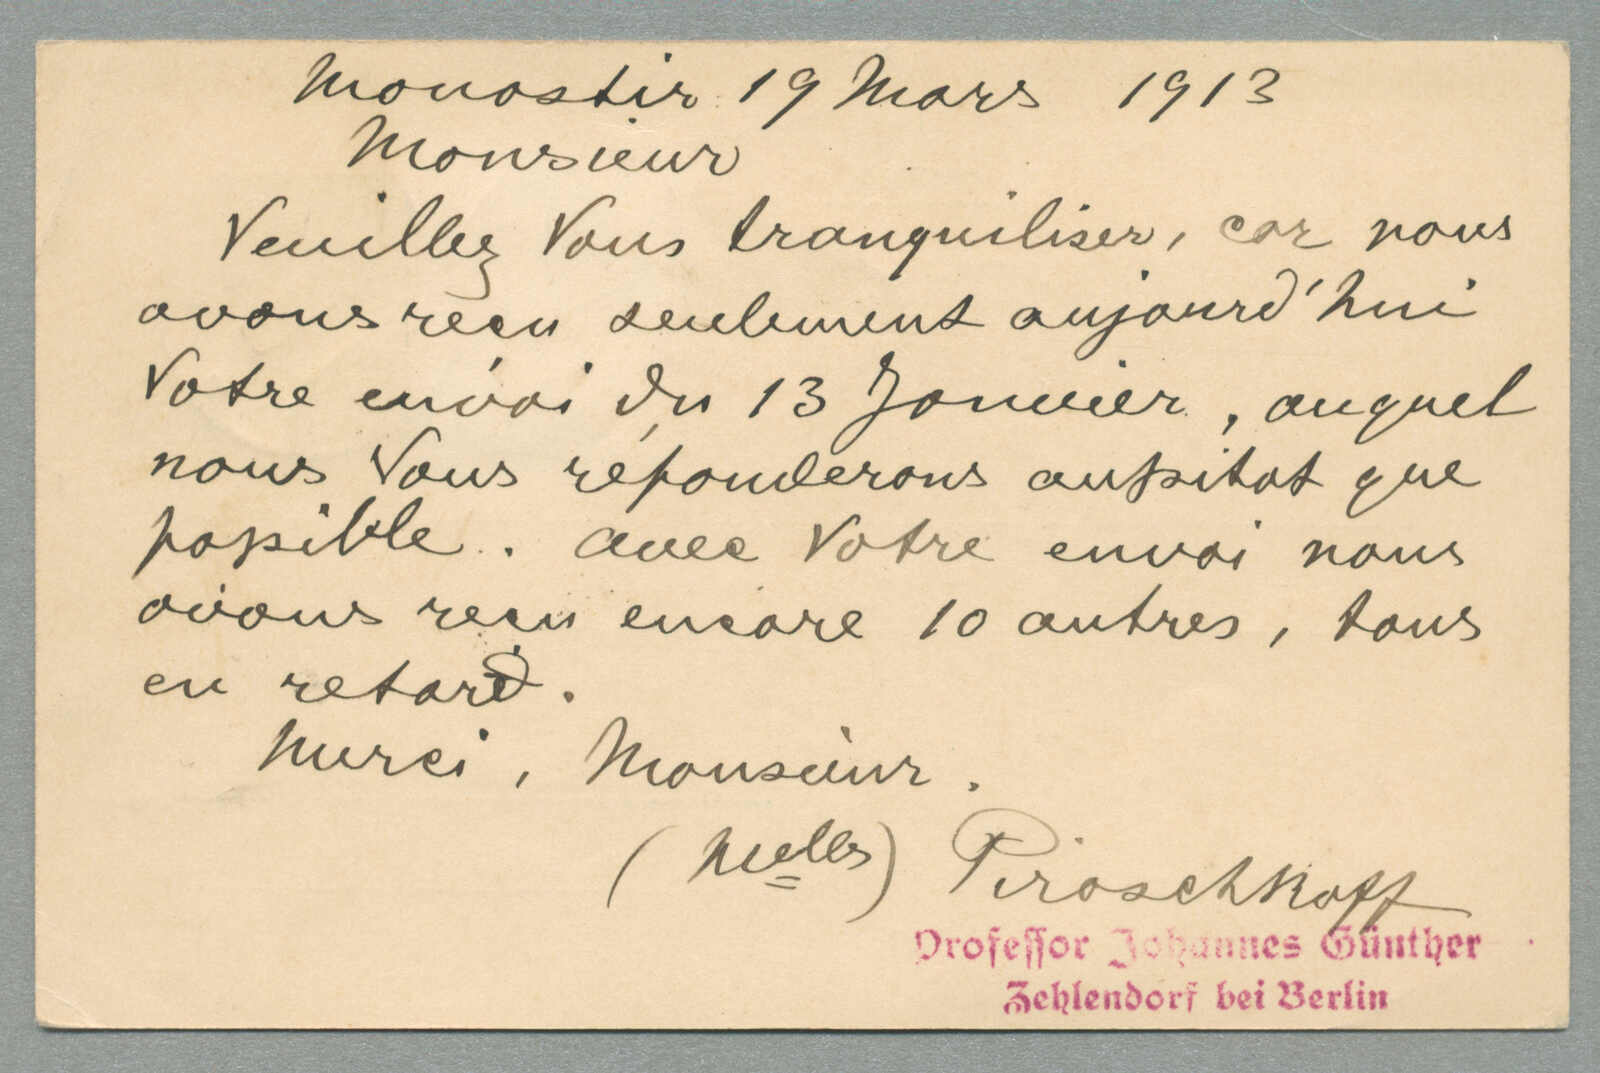 Monastir 19 Mars 1913
Monsieur
Veuillez Vous tranquiliser, car nous
avons reçu seulement aujourd'hui
Votre envoi du 13 Janvier, auquel
nous Vous réponderons aussitot que
possible. Avec Votre envoi nous
avons reçu encore 10 autres, tous
en retard.
Merci, Monsieur.
(Melles) Piroschkoff
Professor Johannes Günther
Zehlendorf bei Berlin